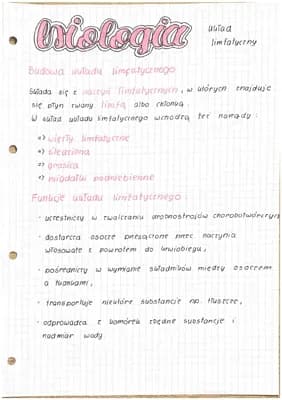 biologia
układ
limfatyczny
Budowa układu limfatycznego
Składa się z naczyń limfatycznych, w których znajduje
się płyn zwany limfą albo chłonką.
W skład układu limfatycznego wchodzą też narządy:
węzły limfatyczne
śledziona
grasica
migdałki podniebienne
Funkcje układu limfatycznego:
· uczestniczy w zwalczaniu drobnoustrojów chorobotwórczych
· dostarcza osocze przesączone przez naczynia
włosowate z powrotem do krwiobiegu,
· pośredniczy w wymianie składników między osoczem
a tkankami,
· transportuje niektóre substancje np. tłuszcze,
· odprowadza z komórek zbędne substancje i
nadmiar wody